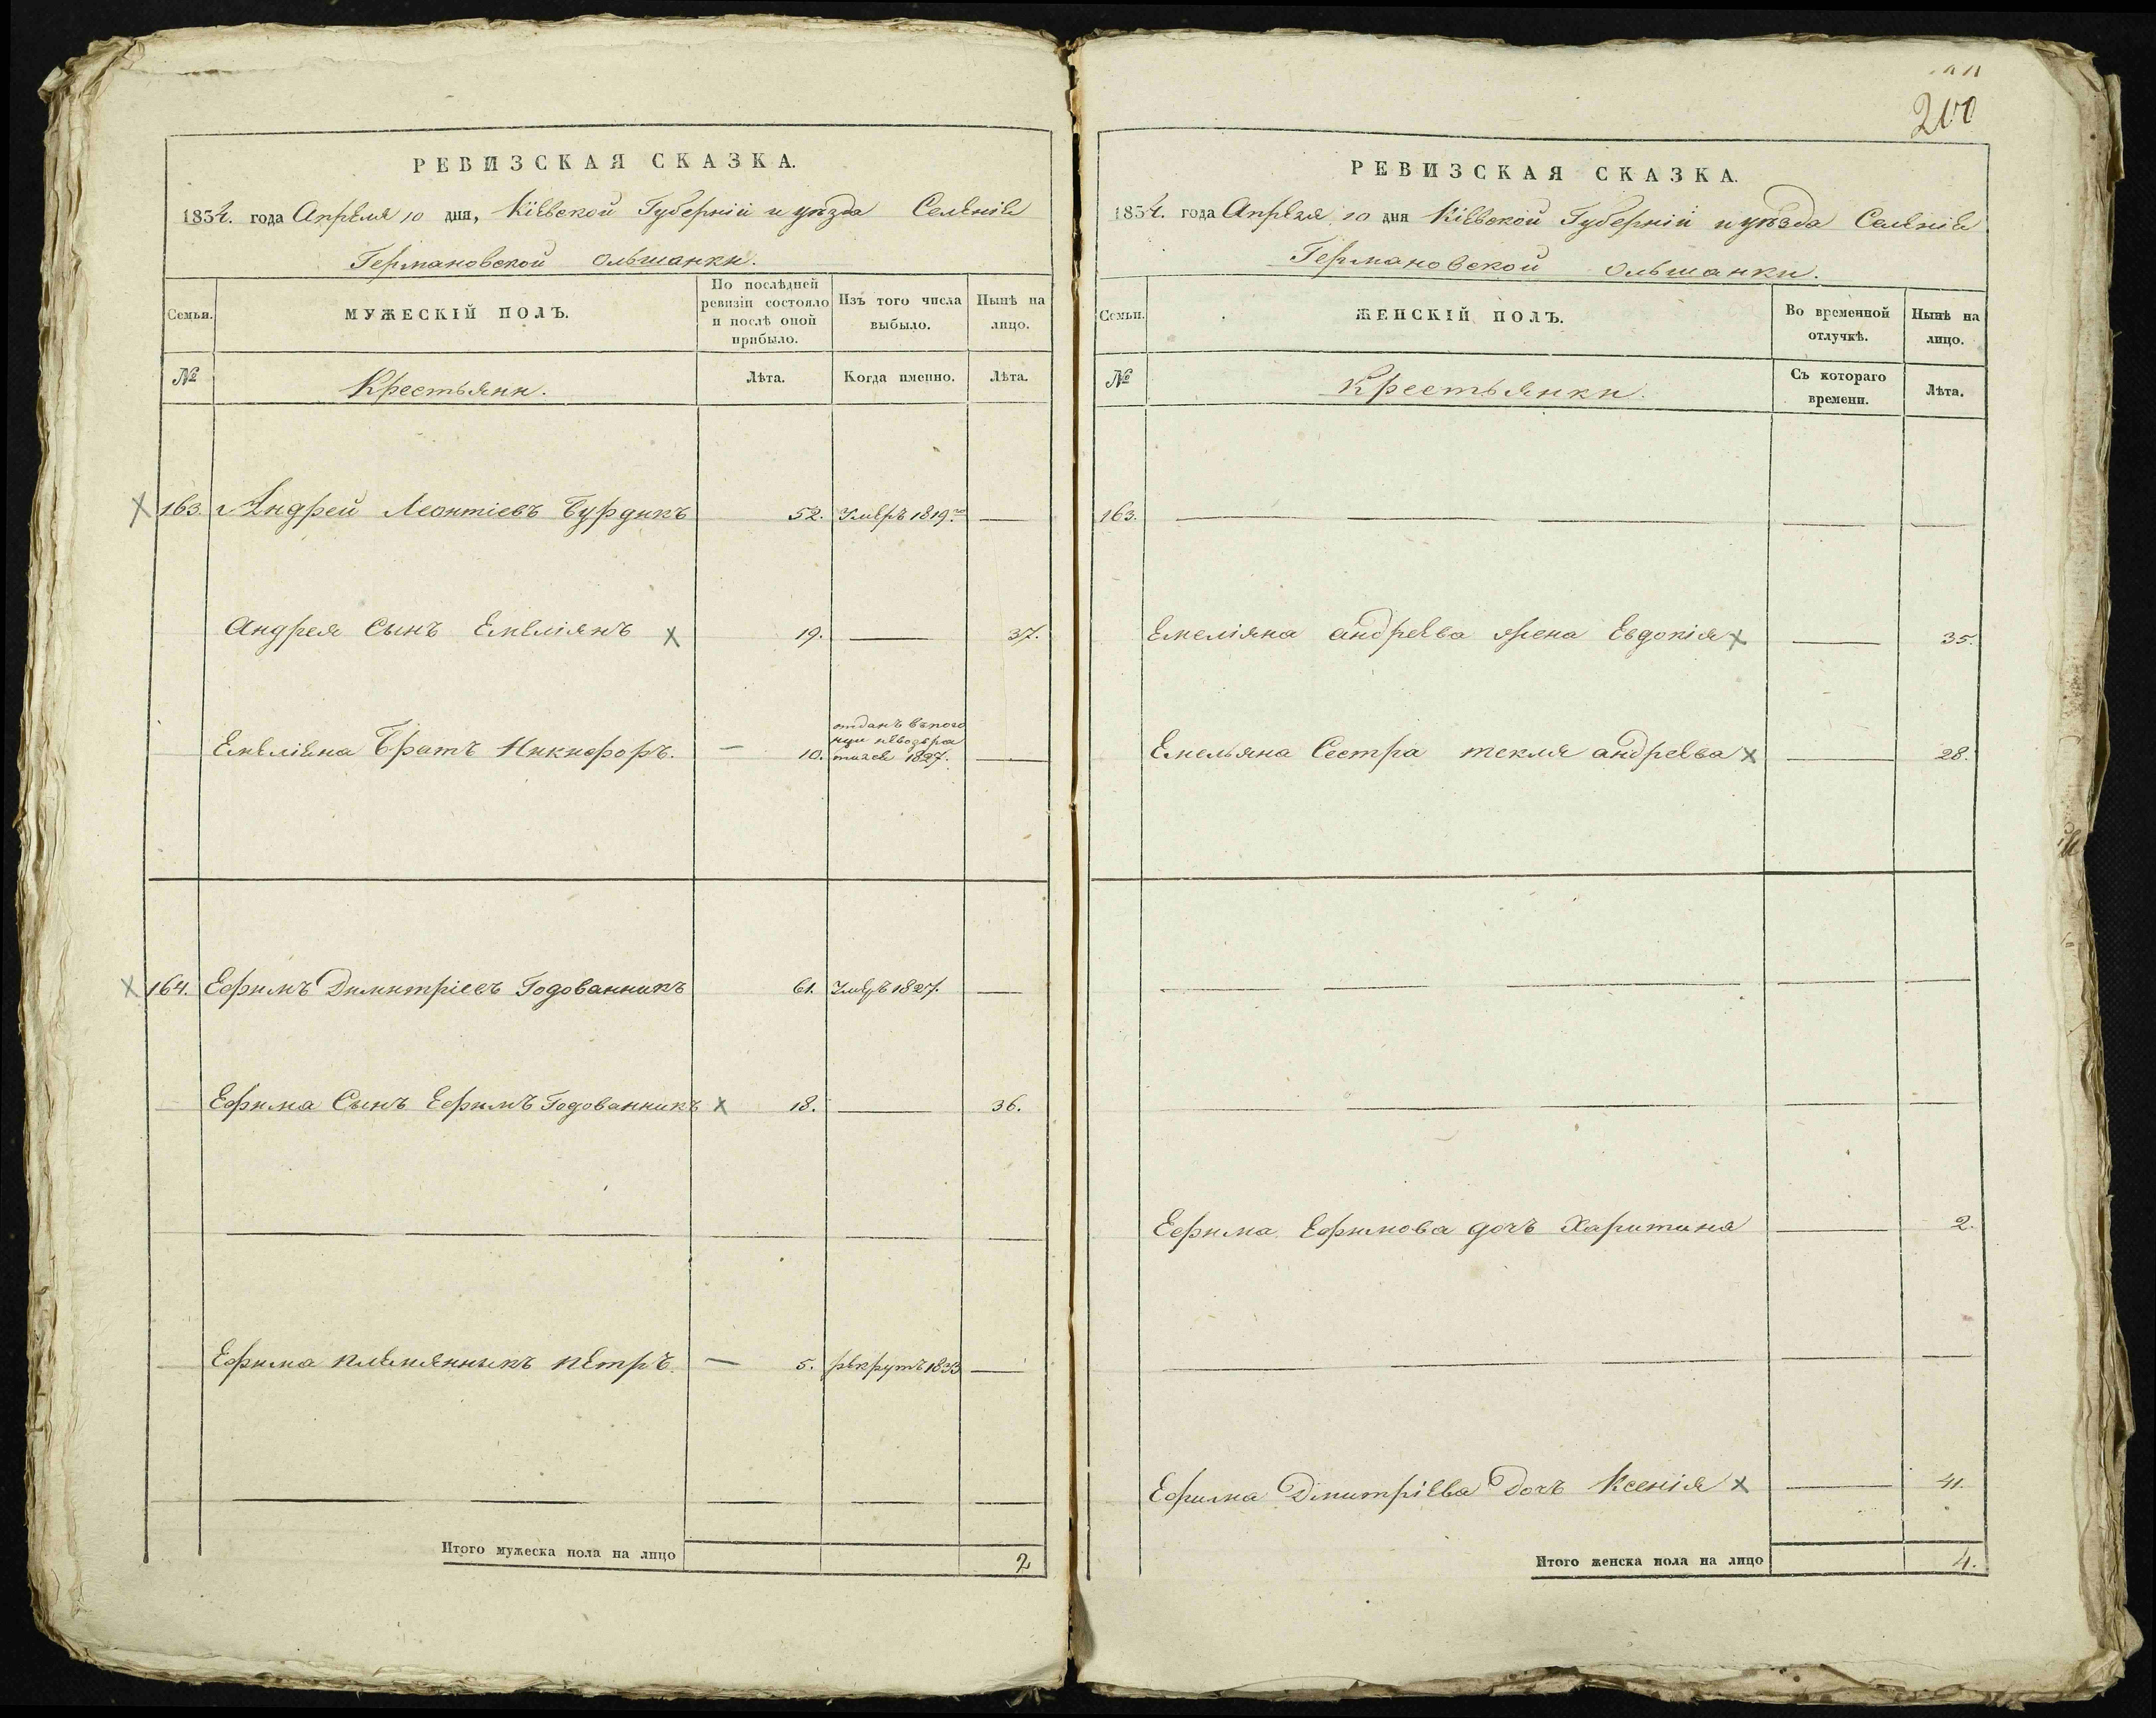 РЕВИЗСКАЯ СКАЗКА.
1834. года Апреля 10 дня, Кіевской Губерніи и уѣзда Селеніе
Германовской Ольшанки.
Семьи.
МУЖЕСКІЙ ПОЛЪ.
По послѣдней
ревизіи состояло
и послѣ оной
прибыло.
Изъ того числа
выбыло.
Нынѣ на
лицо.
№
Крестьяни.
Лѣта.
Когда именно.
Лѣта.
163. Андрей Леонтіевъ Бурдикъ 52. Умеръ 1819го —
Андрея Сынъ Емеліянъ 19. — 37.
Емеліяна Братъ Никифоръ. — 10. —
1827.
164. Ефимъ Димитріевъ Годованникъ 61. Умеръ 1827. —
Ефима Сынъ Ефимъ Годованникъ 18. — 36.
Ефима племянникъ петръ. — 5. рекрутъ 1833 —
Итого мужеска пола на лицо 2
200
РЕВИЗСКАЯ СКАЗКА.
1834. года Апреля 10 дня Кіевской Губерній и уѣзда Селеніе
Германовской Ольшанки.
Семьи.
ЖЕНСКІЙ ПОЛЪ.
Во временной
отлучкѣ.
Нынѣ на
лицо.
№
Крестьянки.
Съ котораго
времени.
Лѣта.
163. — — —
Емеліяна андреева жена Евдокія — 35.
Емельяна Сестра текля андреева — 28.
Ефима Ефимова дочъ Харитина — 2.
Ефима Дмитріева Дочъ Ксенія — 41.
Итого женска пола на лицо 4.